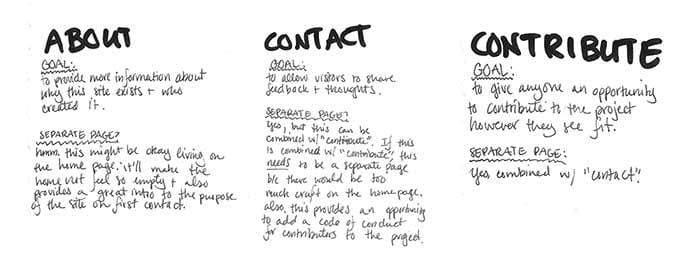 ABOUT
GOAL:
to provide more information about
why this site exists + who
created it.
SEPARATE PAGE?
hmm. this might be okay living on
the home page. it'll make the
home not feel so empty + also
provides a great intro to the purpose
of the site on first contact.
CONTACT
GOAL:
to allow visitors to share
feedback + thoughts.
SEPARATE PAGE?
Yes, but this can be
combined w/ "contribute". If this
is combined w/ "contribute", this
needs to be a separate page
b/c there would be too
much crap on the homepage.
also, this provides an opportunity
to add a code of conduct
for contributors to the project.
CONTRIBUTE
GOAL:
to give anyone an opportunity
to contribute to the project
however they see fit.
SEPARATE PAGE:
Yes combined w/ "contact".